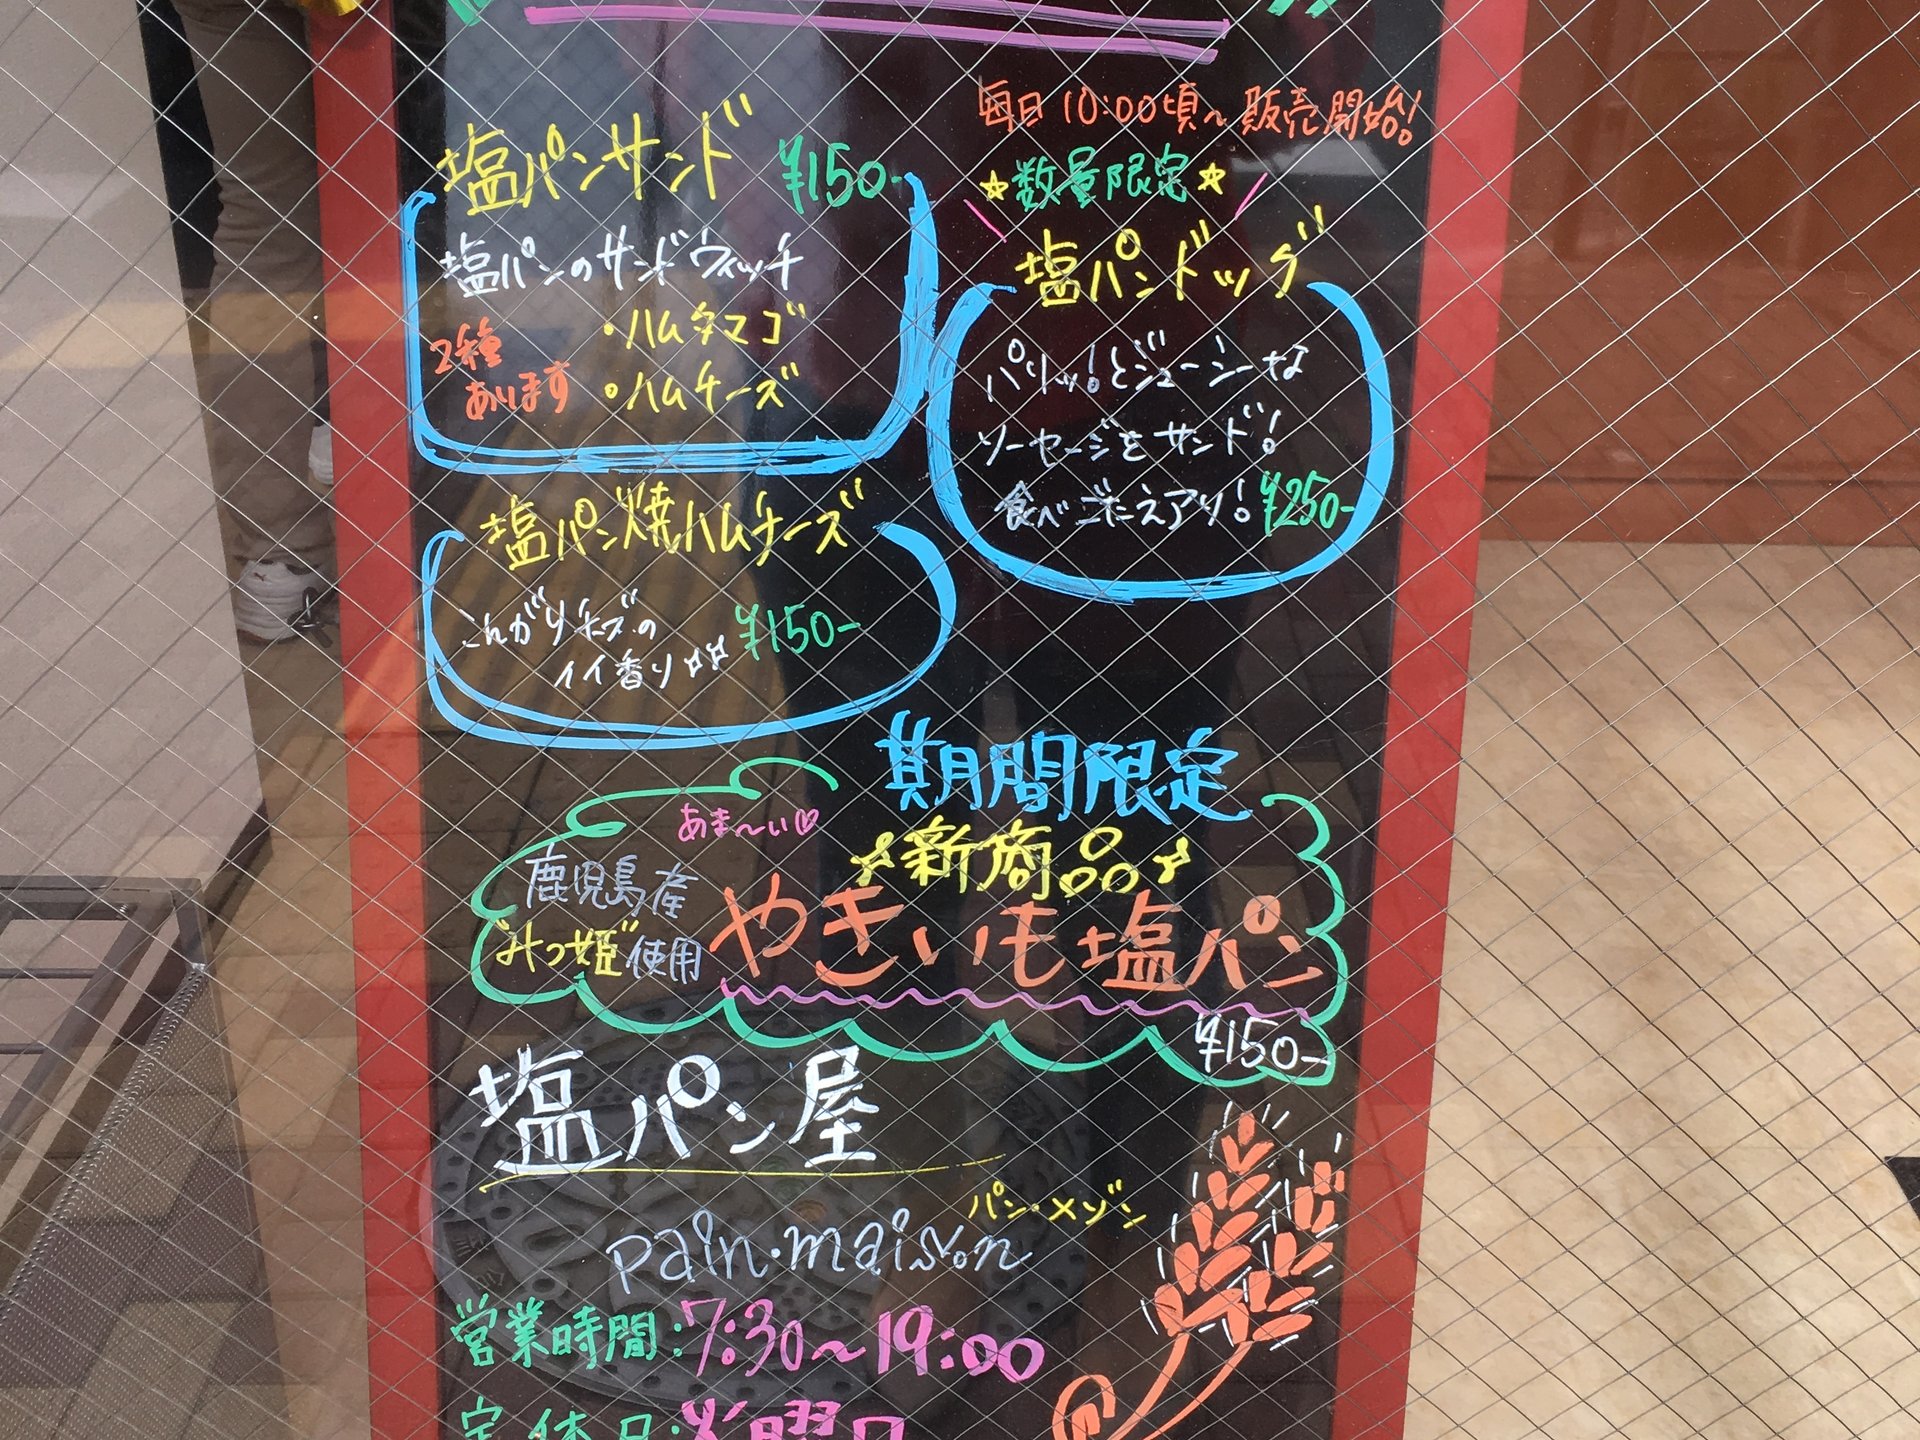 塩パンサンド ¥150-
塩パンのサンドウィッチ
2種あります
・ハムタマゴ
・ハムチーズ
毎日10:00頃〜販売開始!
☆数量限定☆
塩パンドッグ
パリッ!とジューシーな
ソーセージをサンド!
食べごたえアリ! ¥250-
塩パン焼ハムチーズ
こんがりチーズの
イイ香り ¥150-
期間限定
新商品
あま〜い♡
鹿児島産
"みつ姫"使用
やきいも塩パン
¥150-
塩パン屋
パン・メゾン
pain・maison
営業時間:7:30〜19:00
定休日:火曜日